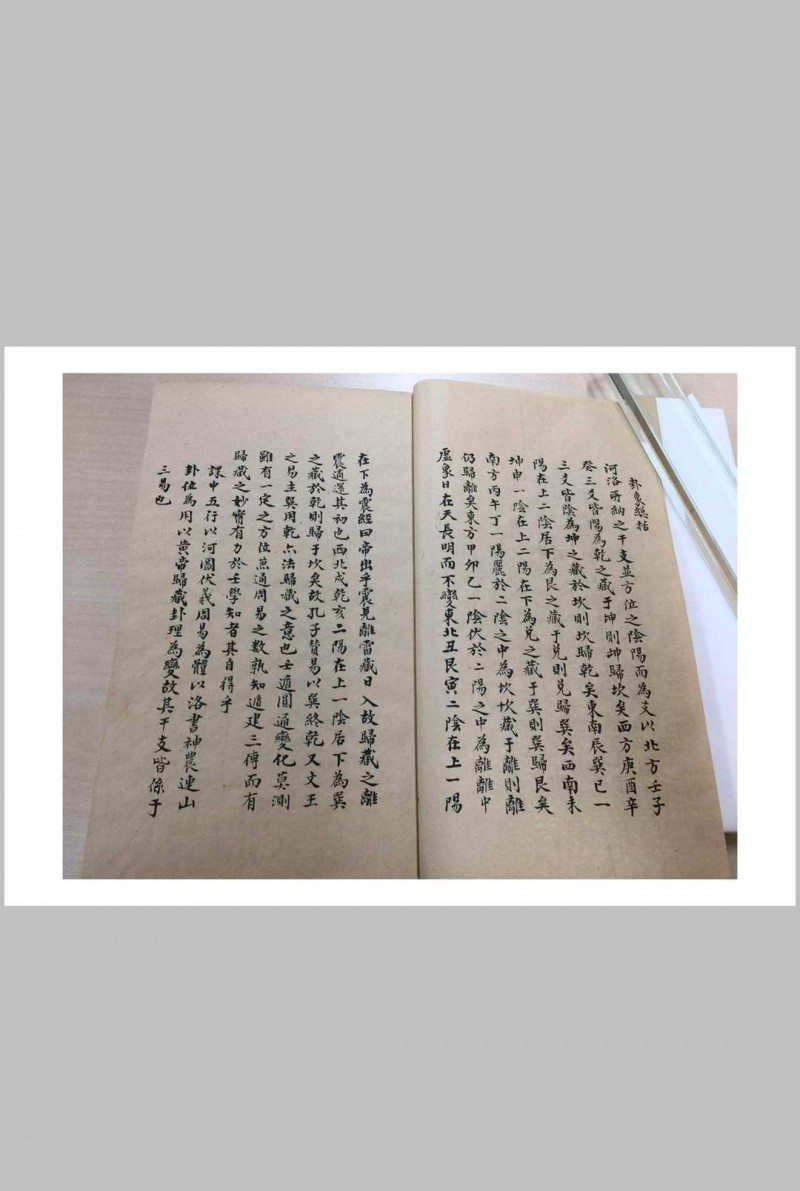 卦象總括
河洛所納之干支並方位之陰陽而為爻以北方壬子
癸三爻皆陽為乾之藏于坤則坤歸坎矣西方庚酉辛
三爻皆陰為坤之藏於坎則坎歸乾矣東南辰巽巳一
陽在上二陰居下為艮之藏于兑則兑歸巽矣西南未
坤申一陰在上二陽在下為兑之藏于巽則巽歸艮矣
南方丙午丁一陽麗於二陰之中為坎坎藏于離則離
仍歸離矣東方甲卯乙一陰伏於二陽之中為離離中
虛象日在天長明而不變東北丑艮寅二陰在上一陽
在下為震經曰帝出乎震見離雷藏日入故歸藏之離
震適還其初也西北戌乾亥二陽在上一陰居下為巽
之藏於乾則歸于坎矣故孔子贊易以巽終乾又文王
之易主巽用乾六法歸藏之意也壬遁圓通變化莫測
雖有一定之方位無通周易之數孰知遁建三傳而有
歸藏之妙實有力於壬學知者其自得乎
課中五行以河圖伏羲周易為體以洛書神農連山
卦位為用以黄帝歸藏卦理為變故其干支皆係于
三易也